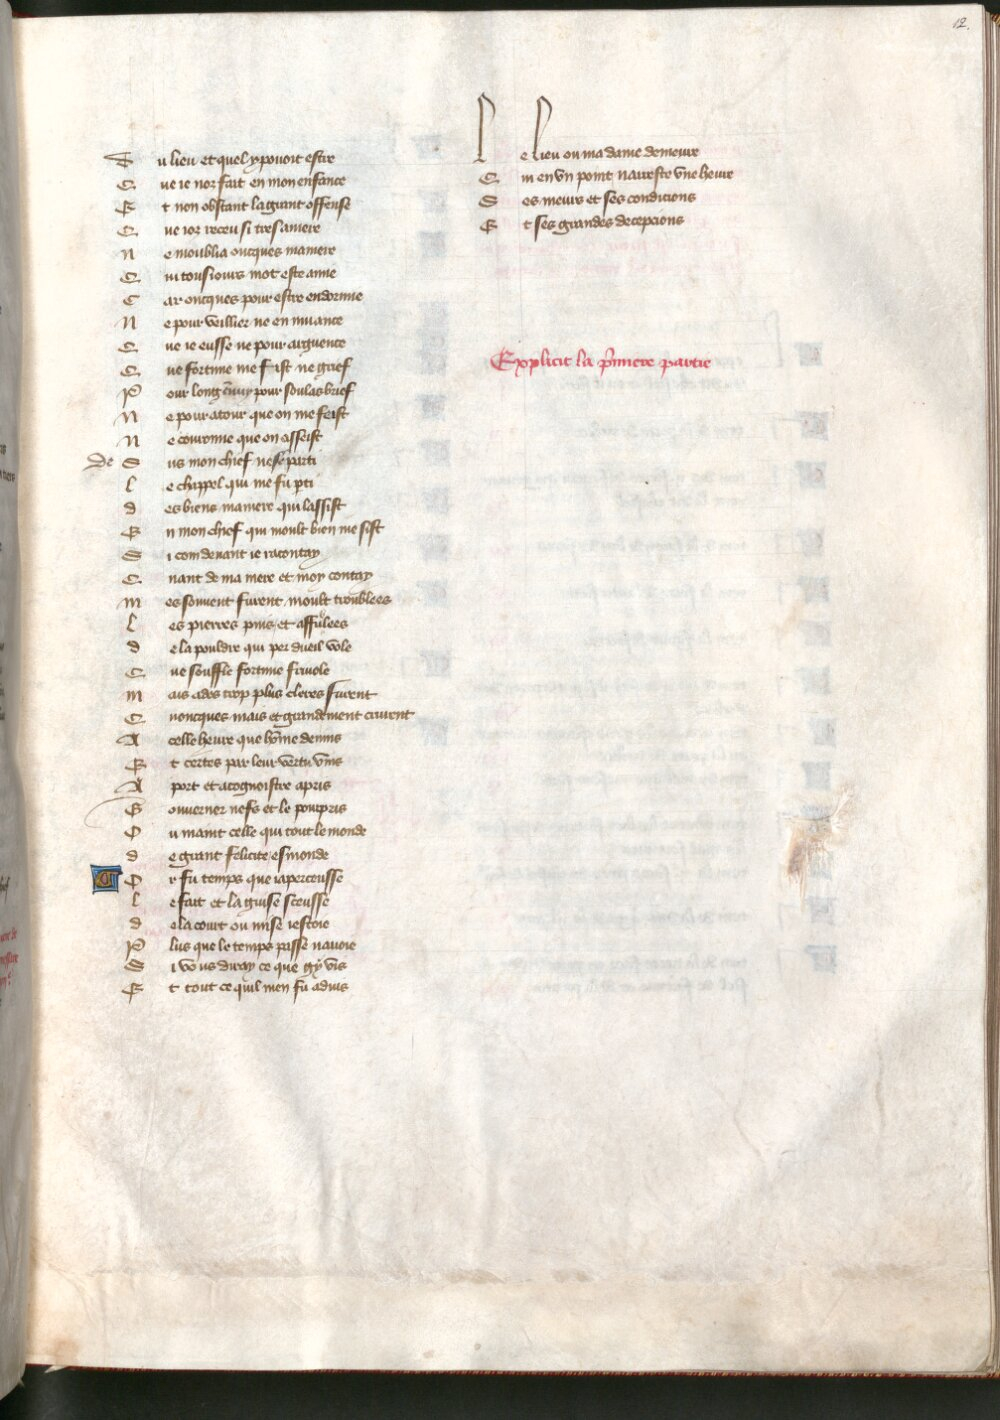 12.
Du lieu et quel y pouoit estre
Que ie nor fait en mon enfance
Et non obstant la grant offense
Que ior receu si tres amere
ne moublia oncques ma mere
Qui tousiours mot este amie
Car oncques pour estre endormie
Ne pour veillier ne en muance
Que ie eusse ne pour arguence
Que fortune me fist ne grief
Pour long ennuy pour soulas brief
Ne pour atour que on me feist
Ne couronne que on asseist
De Sus mon chief ne se parti
Le chappel qui me fu pti
des biens ma mere qui lassist
En mon chief qui moult bien me sist
Si com deuant ie racontay
Quant de ma mere et moy contay
mes souuent furent moult troublees
Les pierres puis et affulees
de la pouldre qui par dueil vole
Que souffle fortune friuole
mais ades trop plus cleres furent
Quoncques mais et grandement crurent
A celle heure que home deuins
Et certes par leur vertu vins
A port et a cognoistre apris
Gouuerner nefs et le pourpris
Ou maint celle qui tout le monde
de grant felicite esmonde
Or fu temps que iaperceusse
Le fait et la guise sceusse
de la court ou mise iestoie
Plus que le temps passe nauoie
Si vous diray ce que gy vis
Et tout ce quil men fu aduis
Le lieu ou ma dame demeure
Qui en vn point narreste vne heure
Ses meurs et ses condicions
Et ses grandes decepcions
Explicit la pmiere partie